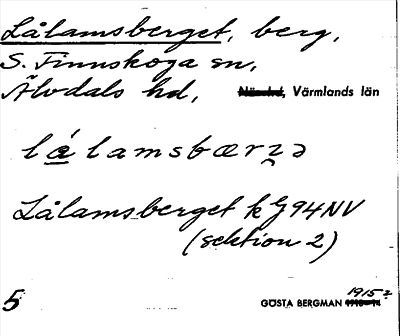 Lålamsberget, berg,
S. Finnskoga sn,
Älvdals hd, Värmlands län
lálamsbærzə
Lålamsberget k G94NV
(sektion 2)
5
1915?
GÖSTA BERGMAN